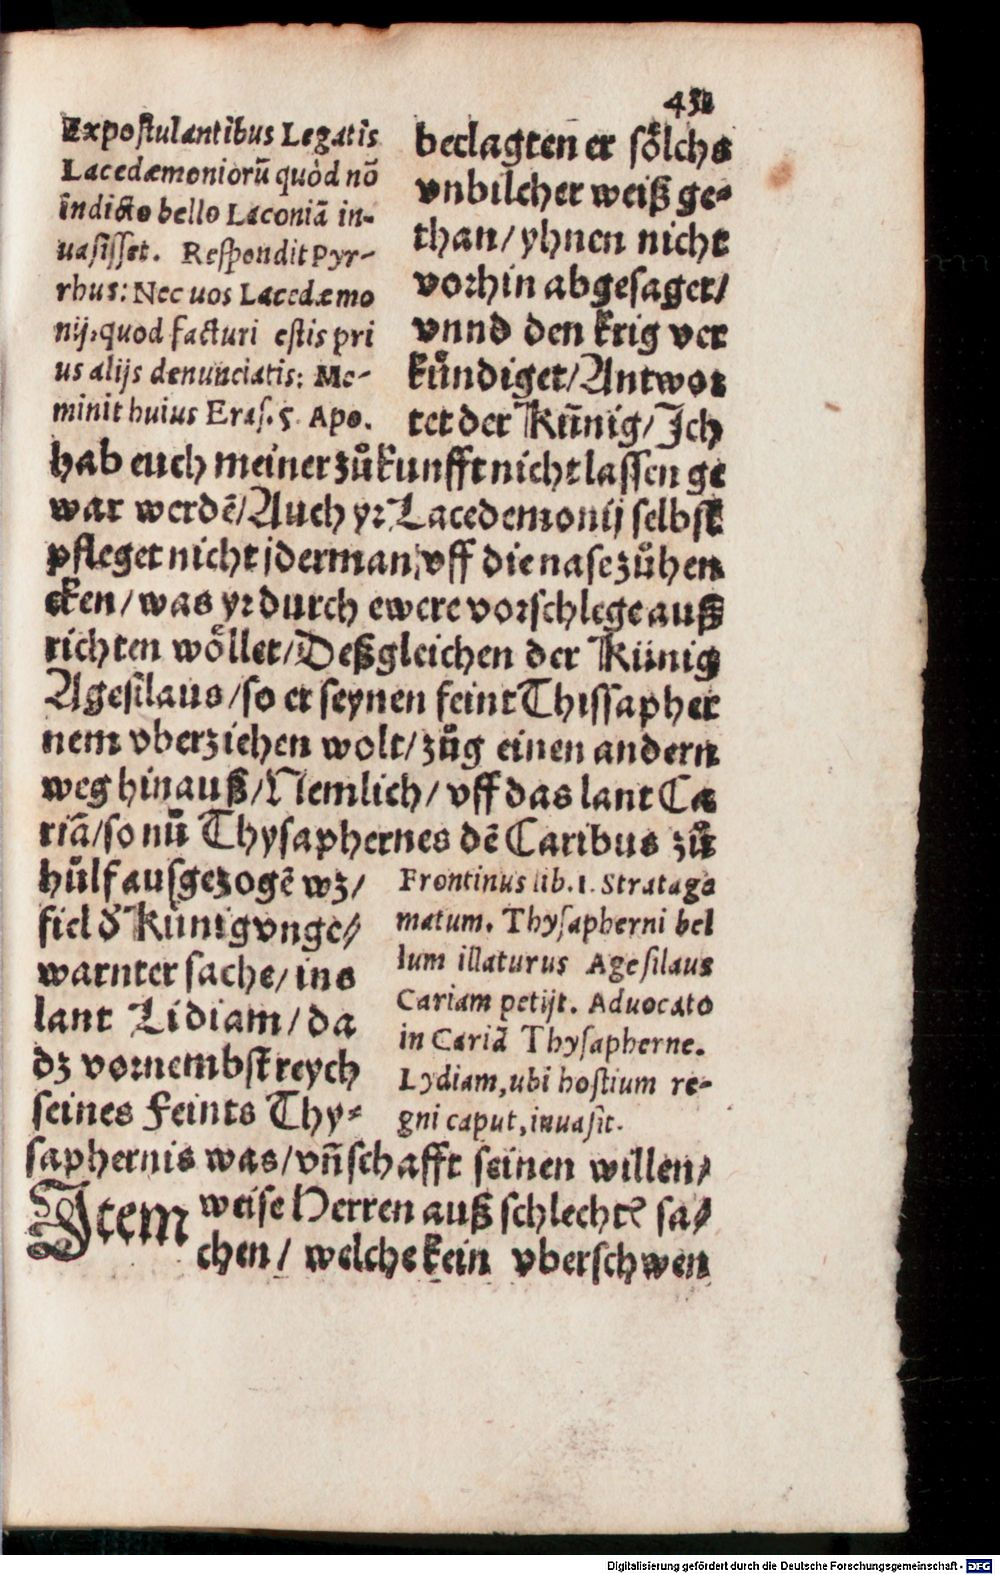 43
Expostulantibus Legatis
Lacedæmoniorũ quòd nõ
indicto bello Laconiã in-
uasisset. Respondit Pyr-
rhus: Nec uos Lacedæmo
nij, quod facturi estis pri
us alijs denunciatis: Me-
minit huius Eras. 5. Apo.
beclagten er soͤlchs
vnbilcher weiß ge⸗
than/ yhnen nicht
vorhin abgesaget/
vnnd den krig ver
kuͤndiget/ Antwor
tet der Kuͤnig/ Ich
hab euch meiner zuͦkunfft nicht lassen ge
war werdẽ/ Auch yr Lacedemonij selbst
pfleget nicht jderman/ vff die nase zuͦhen
cken/ was yr durch ewere vorschlege auß
richten woͤllet/ Deßgleichen der Kuͤnig
Agesilaus/ so er seynen feint Thissapher
nem vberziehen wolt/ zuͦg einen andern
weg hinauß/ Nemlich/ vff das lant Ca
riã/ so nuͦ Thysaphernes dẽ Caribus zuͦ
huͤlf ausgezogẽ wz/
fiel dʾ Kuͤnig vnge⸗
warnter sache/ ins
lant Lidiam/ da
dz vornembst reych
seines Feints Thy⸗
Frontinus lib. 1. Stratage
matum. Thysapherni bel
lum illaturus Agesilaus
Cariam petijt. Aduocato
in Cariã Thysapherne.
Lydiam, ubi hostium re-
gni caput, inuasit.
saphernis was/ vñ schafft seinen willen/
Item weise Herren auß schlechtẽ sa⸗
chen/ welche kein vberschwen
Digitalisierung gefördert durch die Deutsche Forschungsgemeinschaft - DFG